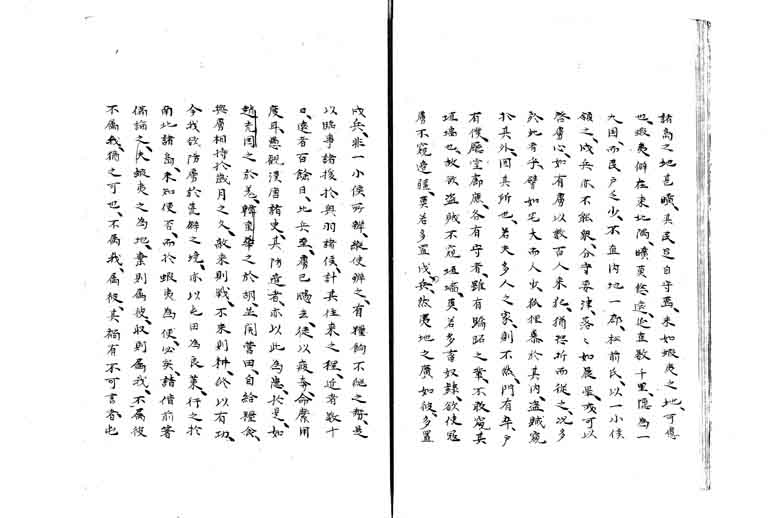 諸島之地甚曠、其民足自守焉、未如蝦夷之地、可患
也、蝦夷僻在東北隅、曠莫悠遠、延直数千里、隠為一
大国而民戸乏少、不直内地一郡、松前氏、以一小侯
領之、戍兵亦不能衆、分守要津、落々如晨星、或可以
啓虜心、如有虜以数百人来犯、猶恐折而従之、况多
於此者乎、譬如宅大而人少、狐狸集於其内、盗賊窺
於其外、固其所也、若夫多人之家、則不然、門有卒、戸
有僕、庁堂廊廡、各有守者、雖有蹻跖之輩、不敢窺其
垣墻也、故欲盗賊不窺垣墻、莫若多畜奴隷、欲使冠
虜不窺辺彊、莫若多置戍兵、然夷地之広、如彼多置
戍兵、非一小侯所辨、縦使辨之、有糧餉不継之弊、是
以臨事諸援於奥羽諸侯、計其往来之程、近者数十
日、遠者百餘日、比兵至、虜已颺去、徒以疲奔命糜用
度耳、愚観漢唐諸史、其防辺者、亦以此為患、於是如
趙充国之於羌、韓重華之於胡、並開営田、自給糧食、
与虜相持於歳月之久、敵来則戦、不来則耕、終以有功、
今我欲防虜於荒僻之境、亦以屯田為良策、行之於
南北諸島、未知便否、而於蝦夷為便、必矣、諸借前箸
備論之、夫蝦夷之為地、棄則属彼、収則属我、不属彼
不属我、猶之可也、不属我、属彼、其禍有不可言者、也